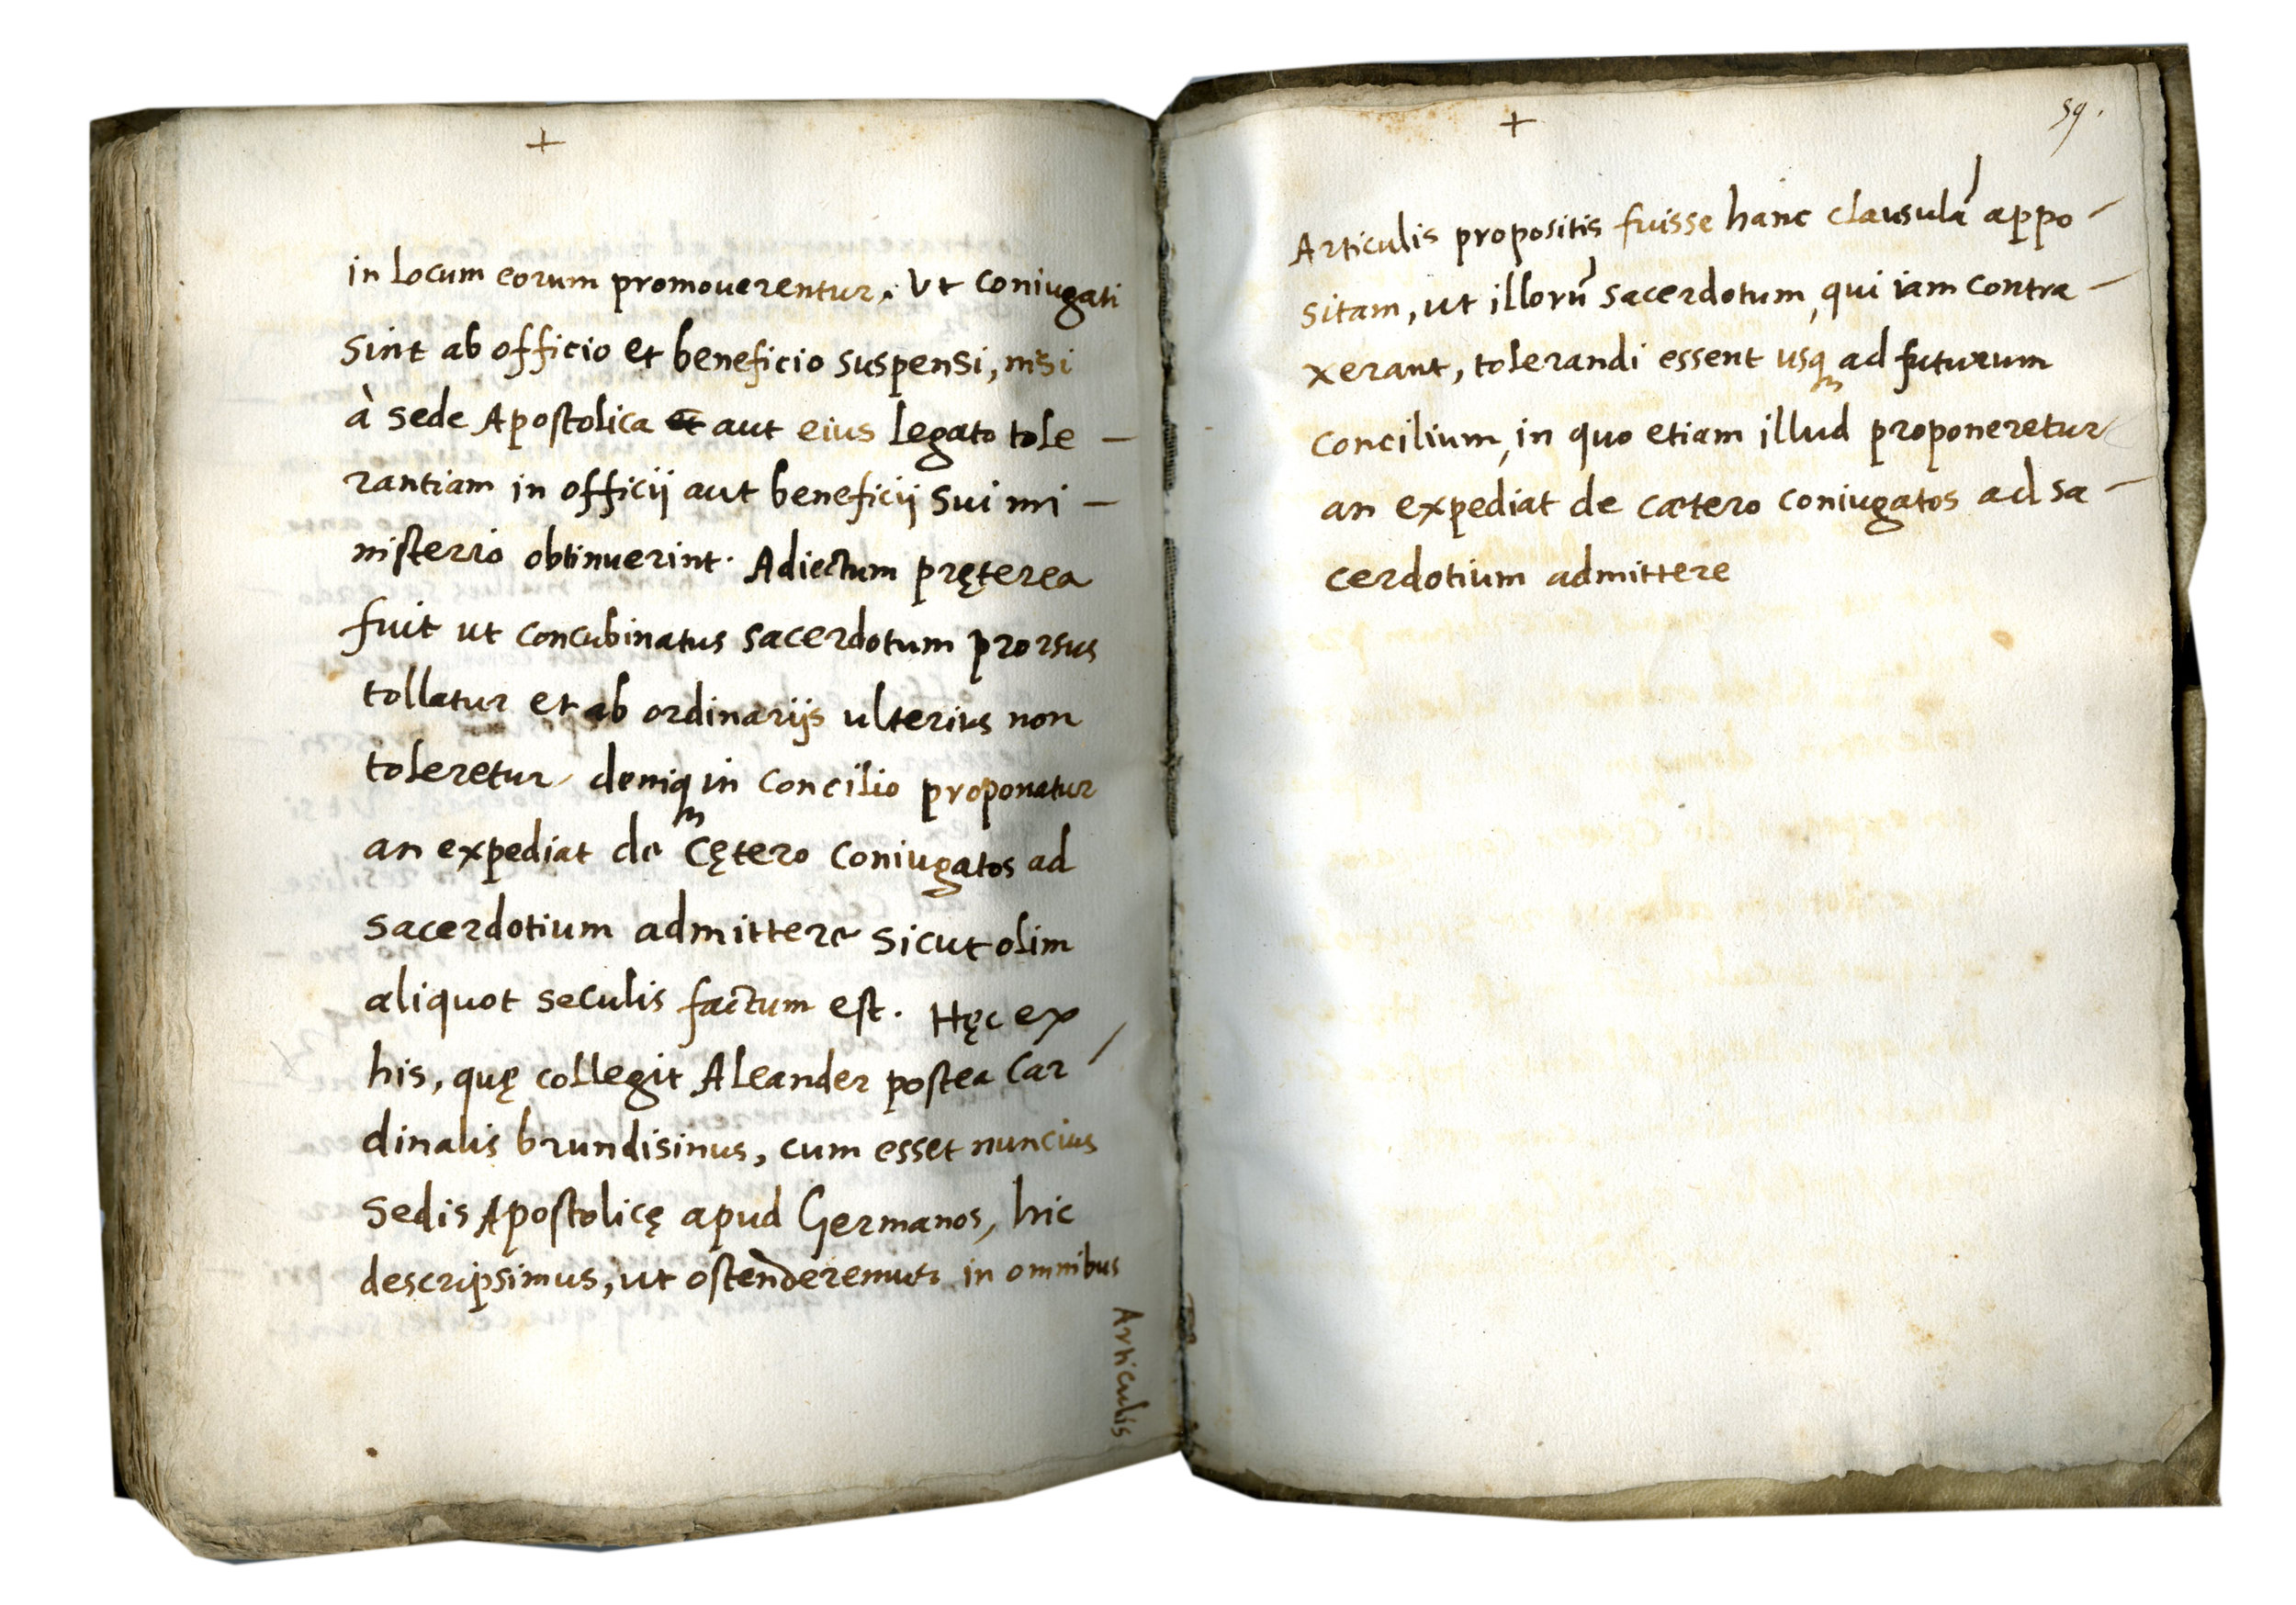 +
in locum eorum promouerentur. Vt coniugati
sint ab officio et beneficio suspensi, nisi
à sede Apostolica et aut eius legato tole –
rantiam in officij aut beneficij sui mi –
nisterio obtinuerint. Adiectum pręterea
fuit ut concubinatus sacerdotum prorsus
tollatur et ab ordinarijs ulterius non
toleretur deniq in Concilio proponatur
an expediat de cętero coniugatos ad
sacerdotium admittere sicut olim
aliquot seculis factum est. Hęc ex
his, quę collegit Aleander postea Car –
dinalis brundisinus, cum esset nuncius
Sedis Apostolicę apud Germanos, hic
descripsimus, ut ostenderemus in omnibus
Articulis
+
59.
Articulis propositis fuisse hanc clausulā appo –
sitam, ut illorū sacerdotum, qui iam contra –
xerant, tolerandi essent usq ad futurum
concilium, in quo etiam illud proponeretur
an expediat de cætero coniugatos ad sa –
cerdotium admittere